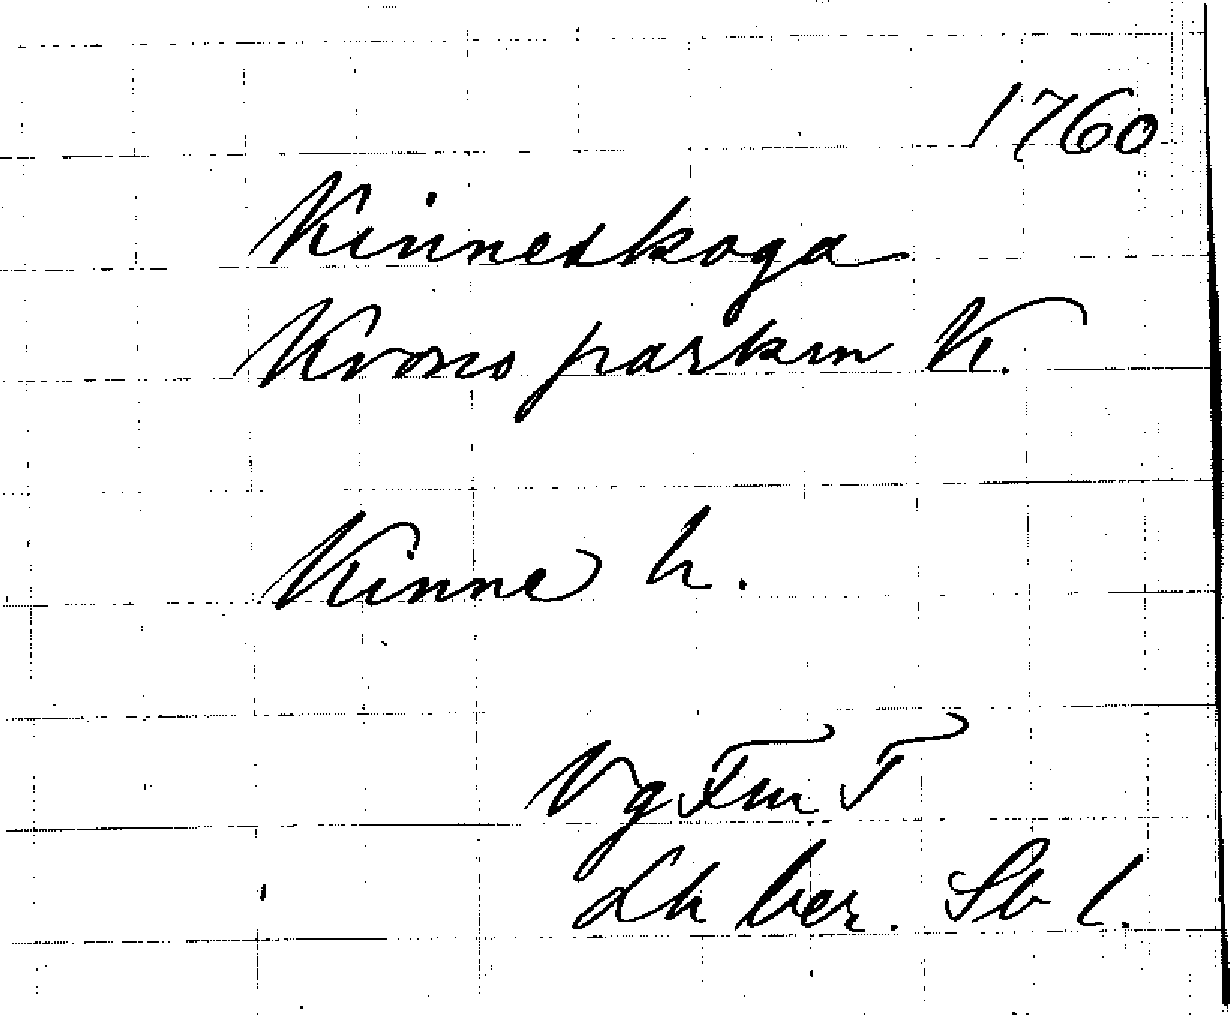 1760
Kinneskoga
Krono parken K.
Kinne h.
Vg Fm T
Lh ber. Sb l.